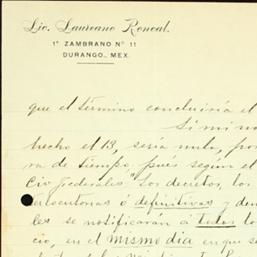 Lic. Laureano Roncal.
1ª ZAMBRANO Nº 11
DURANGO., MEX.
que el término concluiría el
Si mi no
hecho el 13, sería nula, por
ra de tiempo, pués según el
Civ. federales "Los decretos, los
terlocutorias ó definitivas y dem
les se notificarán á todas lo
cio, en el mismo dia en que se